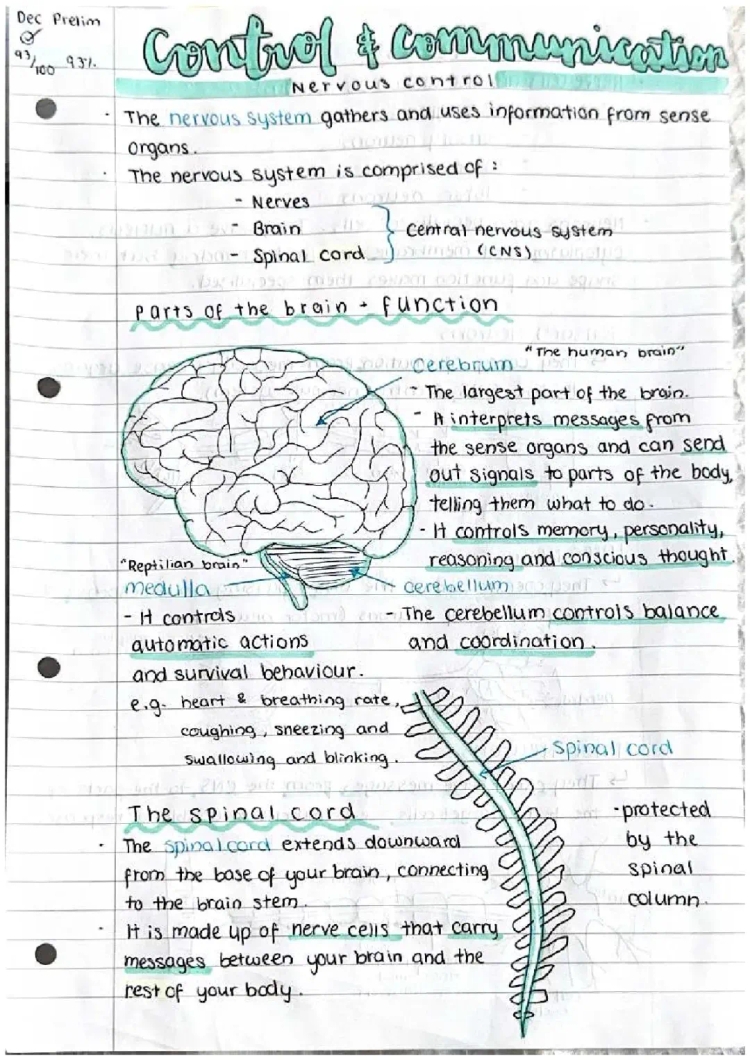 Dec Prelim
93/100 93%
Control & Communication
Nervous control
· The nervous system gathers and uses information from sense
organs.
· The nervous system is comprised of :
- Nerves
- Brain
- Spinal cord
} Central nervous system
(CNS)
Parts of the brain + function
"The human brain"
cerebrum
- The largest part of the brain.
- It interprets messages from
the sense organs and can send
out signals to parts of the body,
telling them what to do.
- It controls memory, personality,
reasoning and conscious thought.
"Reptilian brain"
medulla
- It controls
automatic actions
and survival behaviour.
e.g. heart & breathing rate,
coughing, sneezing and
swallowing and blinking.
cerebellum
- The cerebellum controls balance
and coordination.
Spinal cord
-protected
by the
spinal
column.
The spinal cord
· The spinal cord extends downward
from the base of your brain, connecting
to the brain stem.
· It is made up of nerve cells that carry
messages between your brain and the
rest of your body.